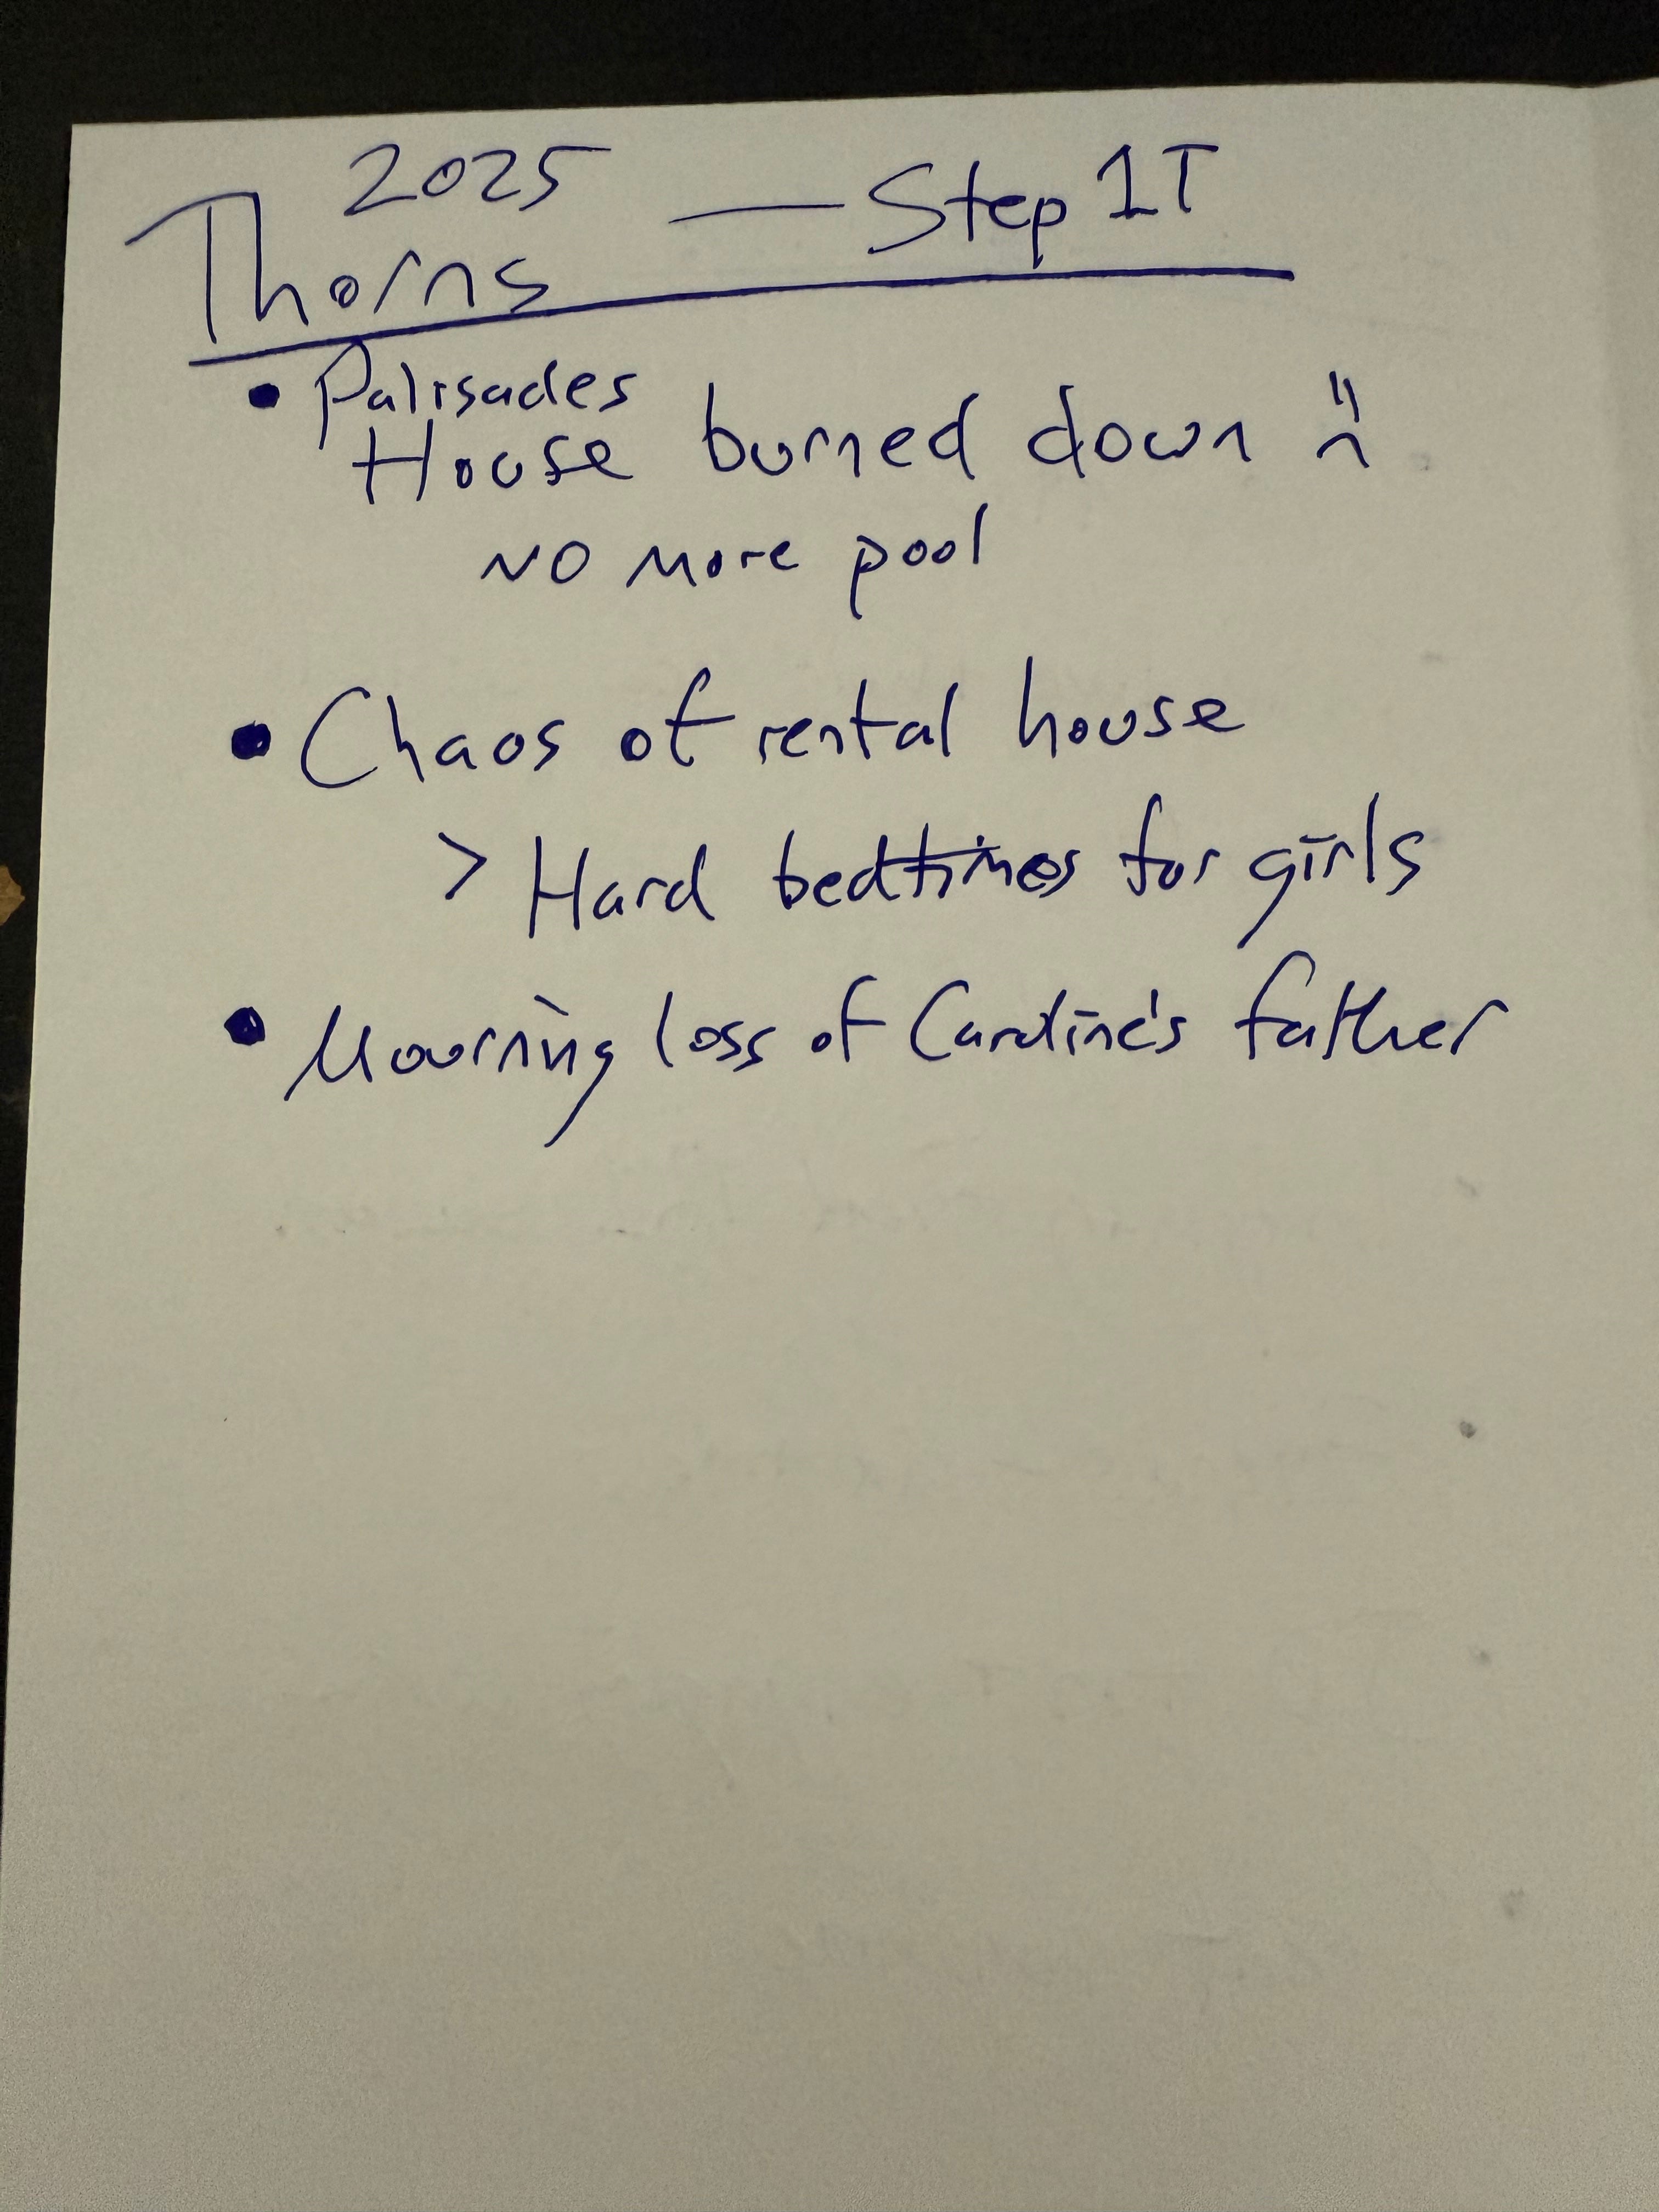 2025
Thorns — Step 1T
• Palisades
House burned down :(
NO more pool
• Chaos of rental house
> Hard bedtimes for girls
• Mourning loss of Caroline's father